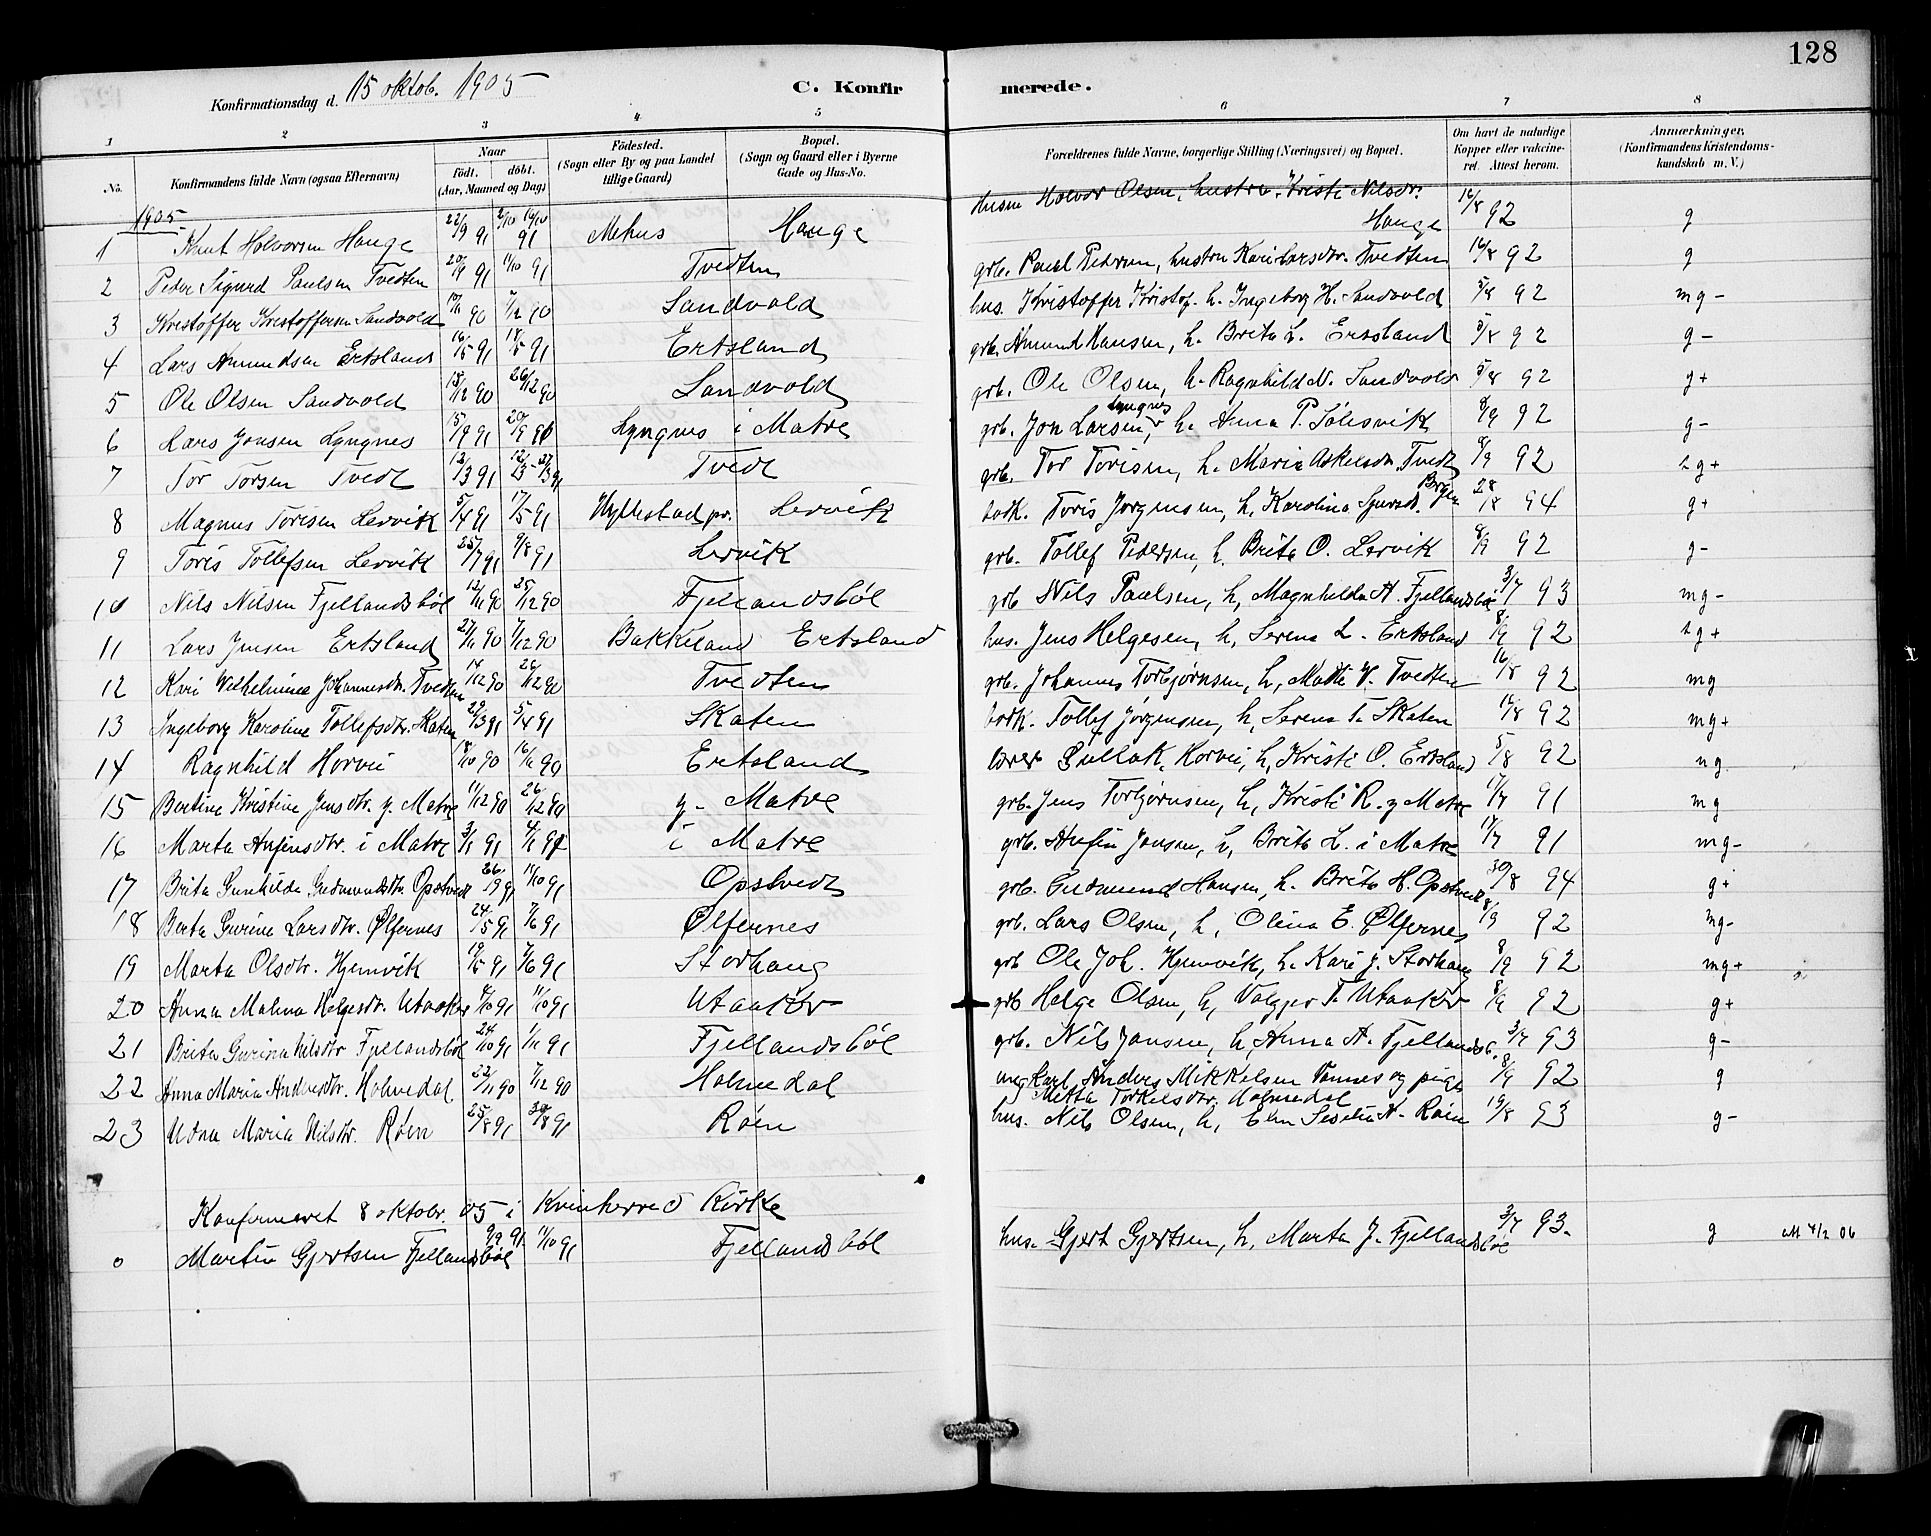 128
Konfirmationsdag d. 15 oktob. 1905
C. Konfirmerede.
1 2 3 4 5 6 7 8
No. Konfirmandens fulde Navn (ogsaa Efternavn) Naar født. døbt. (Aar, Maaned og Dag) Fødested. (Sogn eller By og paa Landet tillige Gaard) Bopæl. (Sogn og Gaard eller i Byerne Gade og Hus-No.) Forældrenes fulde Navne, borgerlige Stilling (Næringsvei) og Bopæl. Om havt de naturlige Kopper eller vakcineret. Attest herom. Anmærkninger. (Konfirmandens Kristendomskundskab m. V.)
1905
1 Knut Holvorsen Hauge 22/9 91 91 Mehus Hauge Husm Holvor Olsen, hustru Kristi Nilsdr. Hauge 16/8 92 g
2 Peder Sigurd Paulsen Tvedten 20/9 91 11/10 91 Tvedten grb. Paul Pedersen, hustru Kari Larsdtr. Tvedten 16/8 92 g
3 Kristoffer Kristoffersen Sandvold 90 7/12 90 Sandvold hus. Kristoffer Kristof. h. Ingeborg H. Sandvold 5/8 92 mg -
4 Lars Amundsen Ertsland 16/5 91 18/5 91 Ertsland grb. Amund Hansen, h. Brita L. Ersland 5/8 92 g -
5 Ole Olsen Sandvold 18/12 90 26/12 90 Sandvold grb. Ole Olsen, h. Ragnhild N. Sandvold 5/8 92 g +
6 Lars Jonsen Lyngnes 15/9 91 20/9 91 Lyngnes i Matre grb. Jon Larsen Lyngnes, h. Anna P. Sølesvik 8/9 92 g -
7 Tor Torsen Tvedt 12/3 91 Tvedt grb. Tor Torisen, h. Maria Askelsdtr. Tvedt 8/9 92 g +
8 Magnus Torisen Lervik 5/4 91 17/5 91 Hyllestad pr. Lervik Toris Jorgensen, h. Karolina 28/8 94 g +
9 Toris Tollefsen Lervik 25/7 91 9/8 91 Lervik grb. Tollef Pedersen, h. Brita O. Lervik 8/9 92 g -
10 Nils Nilsen Fjellandsbøl 12/11 90 25/12 90 Fjellandsbøl grb Nils Paulsen, h, Magnhilda A. Fjellandsbøl 3/7 93 mg -
11 Lars Jensen Ertsland 27/11 90 7/12 90 Bakkeland Ertsland hus. Jens Helgesen, h, Serena L. Ertsland 8/9 92 g +
12 Kari Wilhelmine Johannesdtr. Tvedten 14/12 90 26/12 90 Tvedten grb. Johannes Torbjørnsen, h, Madli V. Tvedten 16/8 92 mg
13 Ingeborg Karoline Tollefsdtr. Skaten 29/3 91 5/4 91 Skaten Tollef Jørgensen, h, Serena T. Skaten 16/8 92 mg +
14 Ragnhild Horvei 18/10 90 16/11 90 Ertsland lærer Gullak Horvei, h, Kristi O. Ertsland 5/8 92 ng
15 Bertine Kristine Jensdtr. y. Matre 11/12 90 26/12 90 y. Matre grb. Jens Torbjørnsen, h, Kristi R. y Matre 17/7 91 mg
16 Marta Anfinsdtr. i Matre 3/1 91 4/1 91 i Matre grb. Anfin Jonsen, h, Brita L. i Matre 17/7 91 mg -
17 Brita Gunhilda Gudmundsdtr Opstvedt 26/9 91 11/10 91 Opstvedt grb. Gudmund Hansen, h. Brita H. Opstvedt 30/8 94 g +
18 Berta Gurine Larsdtr. Ølfernes 24/5 91 7/6 91 Ølfernes grb. Lars Olsen, h, Olina E. Ølfernes 8/9 92 mg -
19 Marta Olsdtr. Hjemvik 19/5 91 7/6 91 Storhaug grb Ole Joh. Hjemvik, h. Kari J. Storhaug 8/9 92 mg +
20 Anna Malena Helgesdtr. Utaaker 4/10 91 11/10 91 Utaaker grb Helge Olsen, h, Valgjer T. Utaaker 8/9 92 g +
21 Brita Gurina Nilsdtr Fjellandsbøl 24/10 91 1/11 91 Fjellandsbøl grb. Nils Jansen, h, Anna A. Fjellandsb. 3/7 93 g -
22 Anna Maria Andersdtr. Holmedal 22/11 90 7/12 90 Holmedal ung Karl Anders Mikkelsen Vannes og pige Metta Torkelsdtr. Holmedal 8/9 92 g
23 Udna Maria Nilsdtr. Røen 25/8 91 30/8 91 Røen hus. Nils Olsen, h, Elen Seselia A. Røen 19/8 93 g -
Konfirmeret 8 oktobr. 05 i Kvinherred Kirke
0 Martin Gjertsen Fjellandsbøl 9/9 91 11/10 91 Fjellandsbøl hus. Gjert Gjertsen, h, Marta J. Fjellandsbøl 3/7 93 g 06